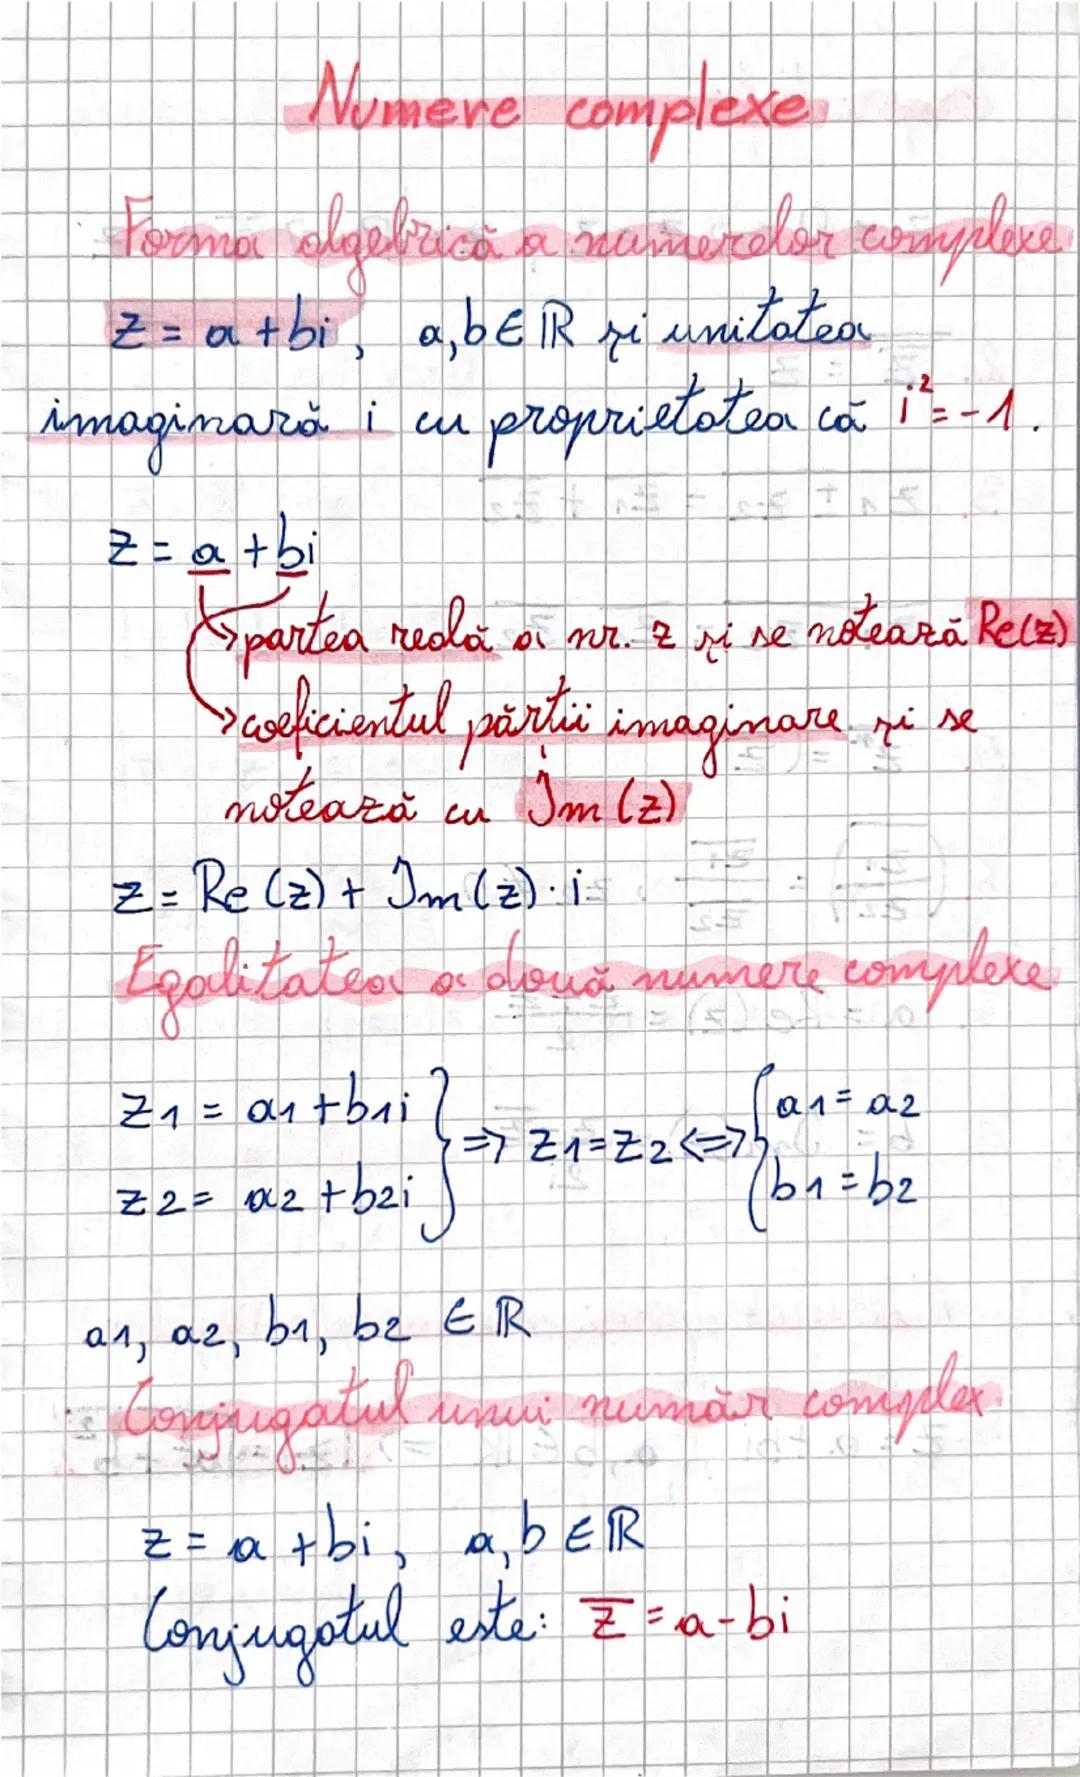 Numere complexe
Forma algebrică a numerelor complexe
z = a + bi, a, b ∈ ℝ și unitatea
imaginară i cu proprietatea că i² = -1.
z = a + bi
partea reală a nr. z și se notează Re(z)
coeficientul părții imaginare și se
notează cu Im(z)
z = Re(z) + Im(z)·i
Egalitatea a două numere complexe
z1 = a1 + b1i
z2 = a2 + b2i } => z1 = z2 <=> { a1 = a2
b1 = b2
a1, a2, b1, b2 ∈ ℝ
Conjugatul unui număr complex
z = a + bi, a, b ∈ ℝ
Conjugatul este: z̅ = a - bi